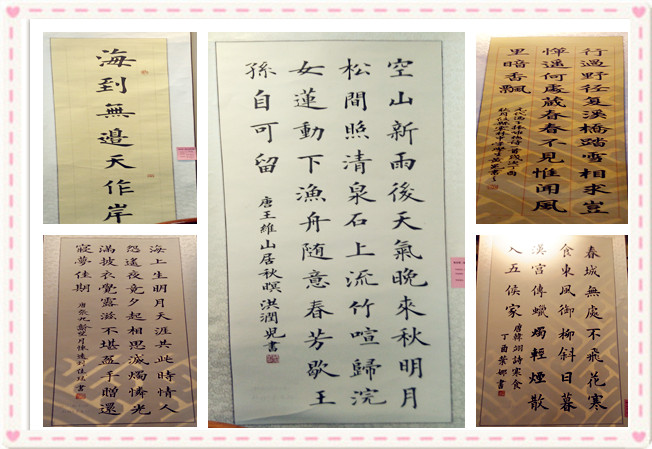 海到無邊天作岸
空山新雨後天氣晚來秋明月
松間照清泉石上流竹喧歸浣
女蓮動下漁舟随意春芳歇王
孫自可留
唐王維山居秋暝洪潤児書
行過野徑复溪橋踏雪相求豈
憚遥何處藏春春不見惟聞風
里暗香飄
海上生明月天涯共此時情人
怨遙夜竟夕起相思滅燭憐光
滿披衣覺露滋不堪盈手贈還
寢夢佳期
唐張九齡望月懷遠
春城無處不飛花寒
食東風御柳斜日暮
漢宮傳蠟燭輕煙散
入五侯家
唐韓翃詩寒食
丁酉葉娜書